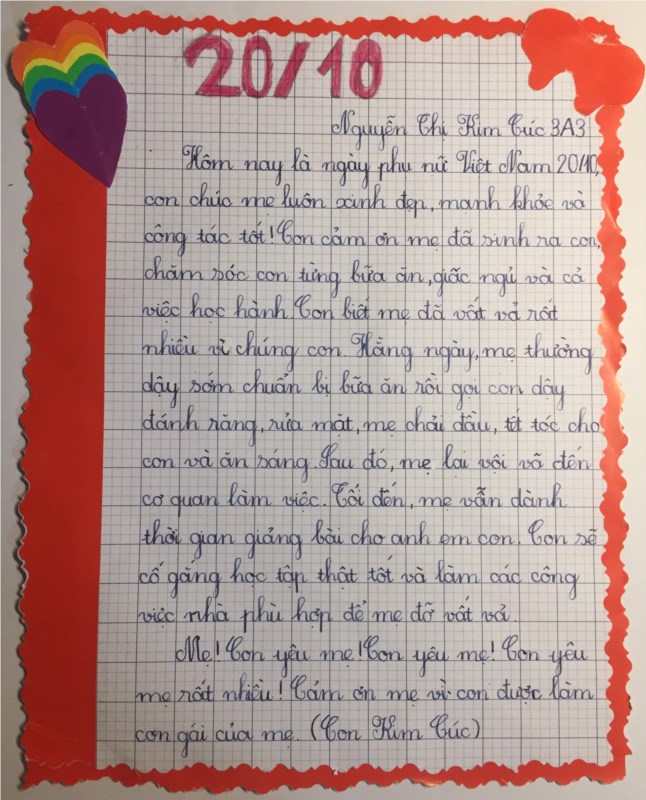 20/10
Nguyễn Thị Kim Cúc 3A3
Hôm nay là ngày phụ nữ Việt Nam 20/10,
con chúc mẹ luôn xinh đẹp, mạnh khỏe và
công tác tốt! Con cảm ơn mẹ đã sinh ra con,
chăm sóc con từng bữa ăn, giấc ngủ và cả
việc học hành. Con biết mẹ đã vất vả rất
nhiều vì chúng con. Hằng ngày, mẹ thường
dậy sớm chuẩn bị bữa ăn rồi gọi con dậy
đánh răng, rửa mặt, mẹ chải đầu, tết tóc cho
con và ăn sáng. Sau đó, mẹ lại vội vã đến
cơ quan làm việc. Tối đến, mẹ vẫn dành
thời gian giảng bài cho anh em con. Con sẽ
cố gắng học tập thật tốt và làm các công
việc nhà phù hợp để mẹ đỡ vất vả.
Mẹ! Con yêu mẹ! Con yêu mẹ! Con yêu
mẹ rất nhiều! Cảm ơn mẹ vì con được làm
con gái của mẹ. (Con Kim Cúc)